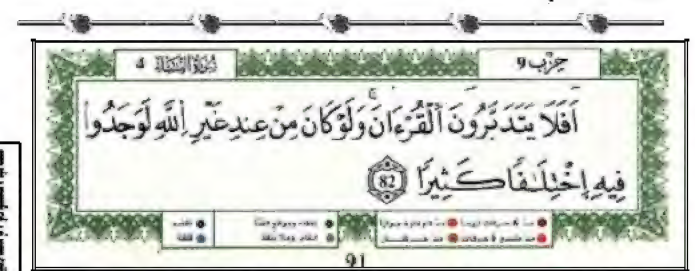 سورة النساء 4
حزب 9
أَفَلَا يَتَدَبَّرُونَ اَلْقُرْءَانَ وَلَوْ كَانَ مِنْ عِندِ غَيْرِ اِللَّهِ لَوَجَدُواْ
فِيهِ اِخْتِلَـٰفًا كَثِيرًا 82
91